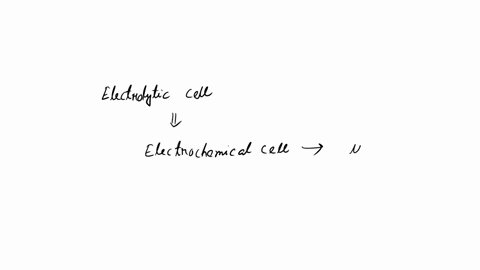 Electrolytic cell
⇓
Electrochemical cell →